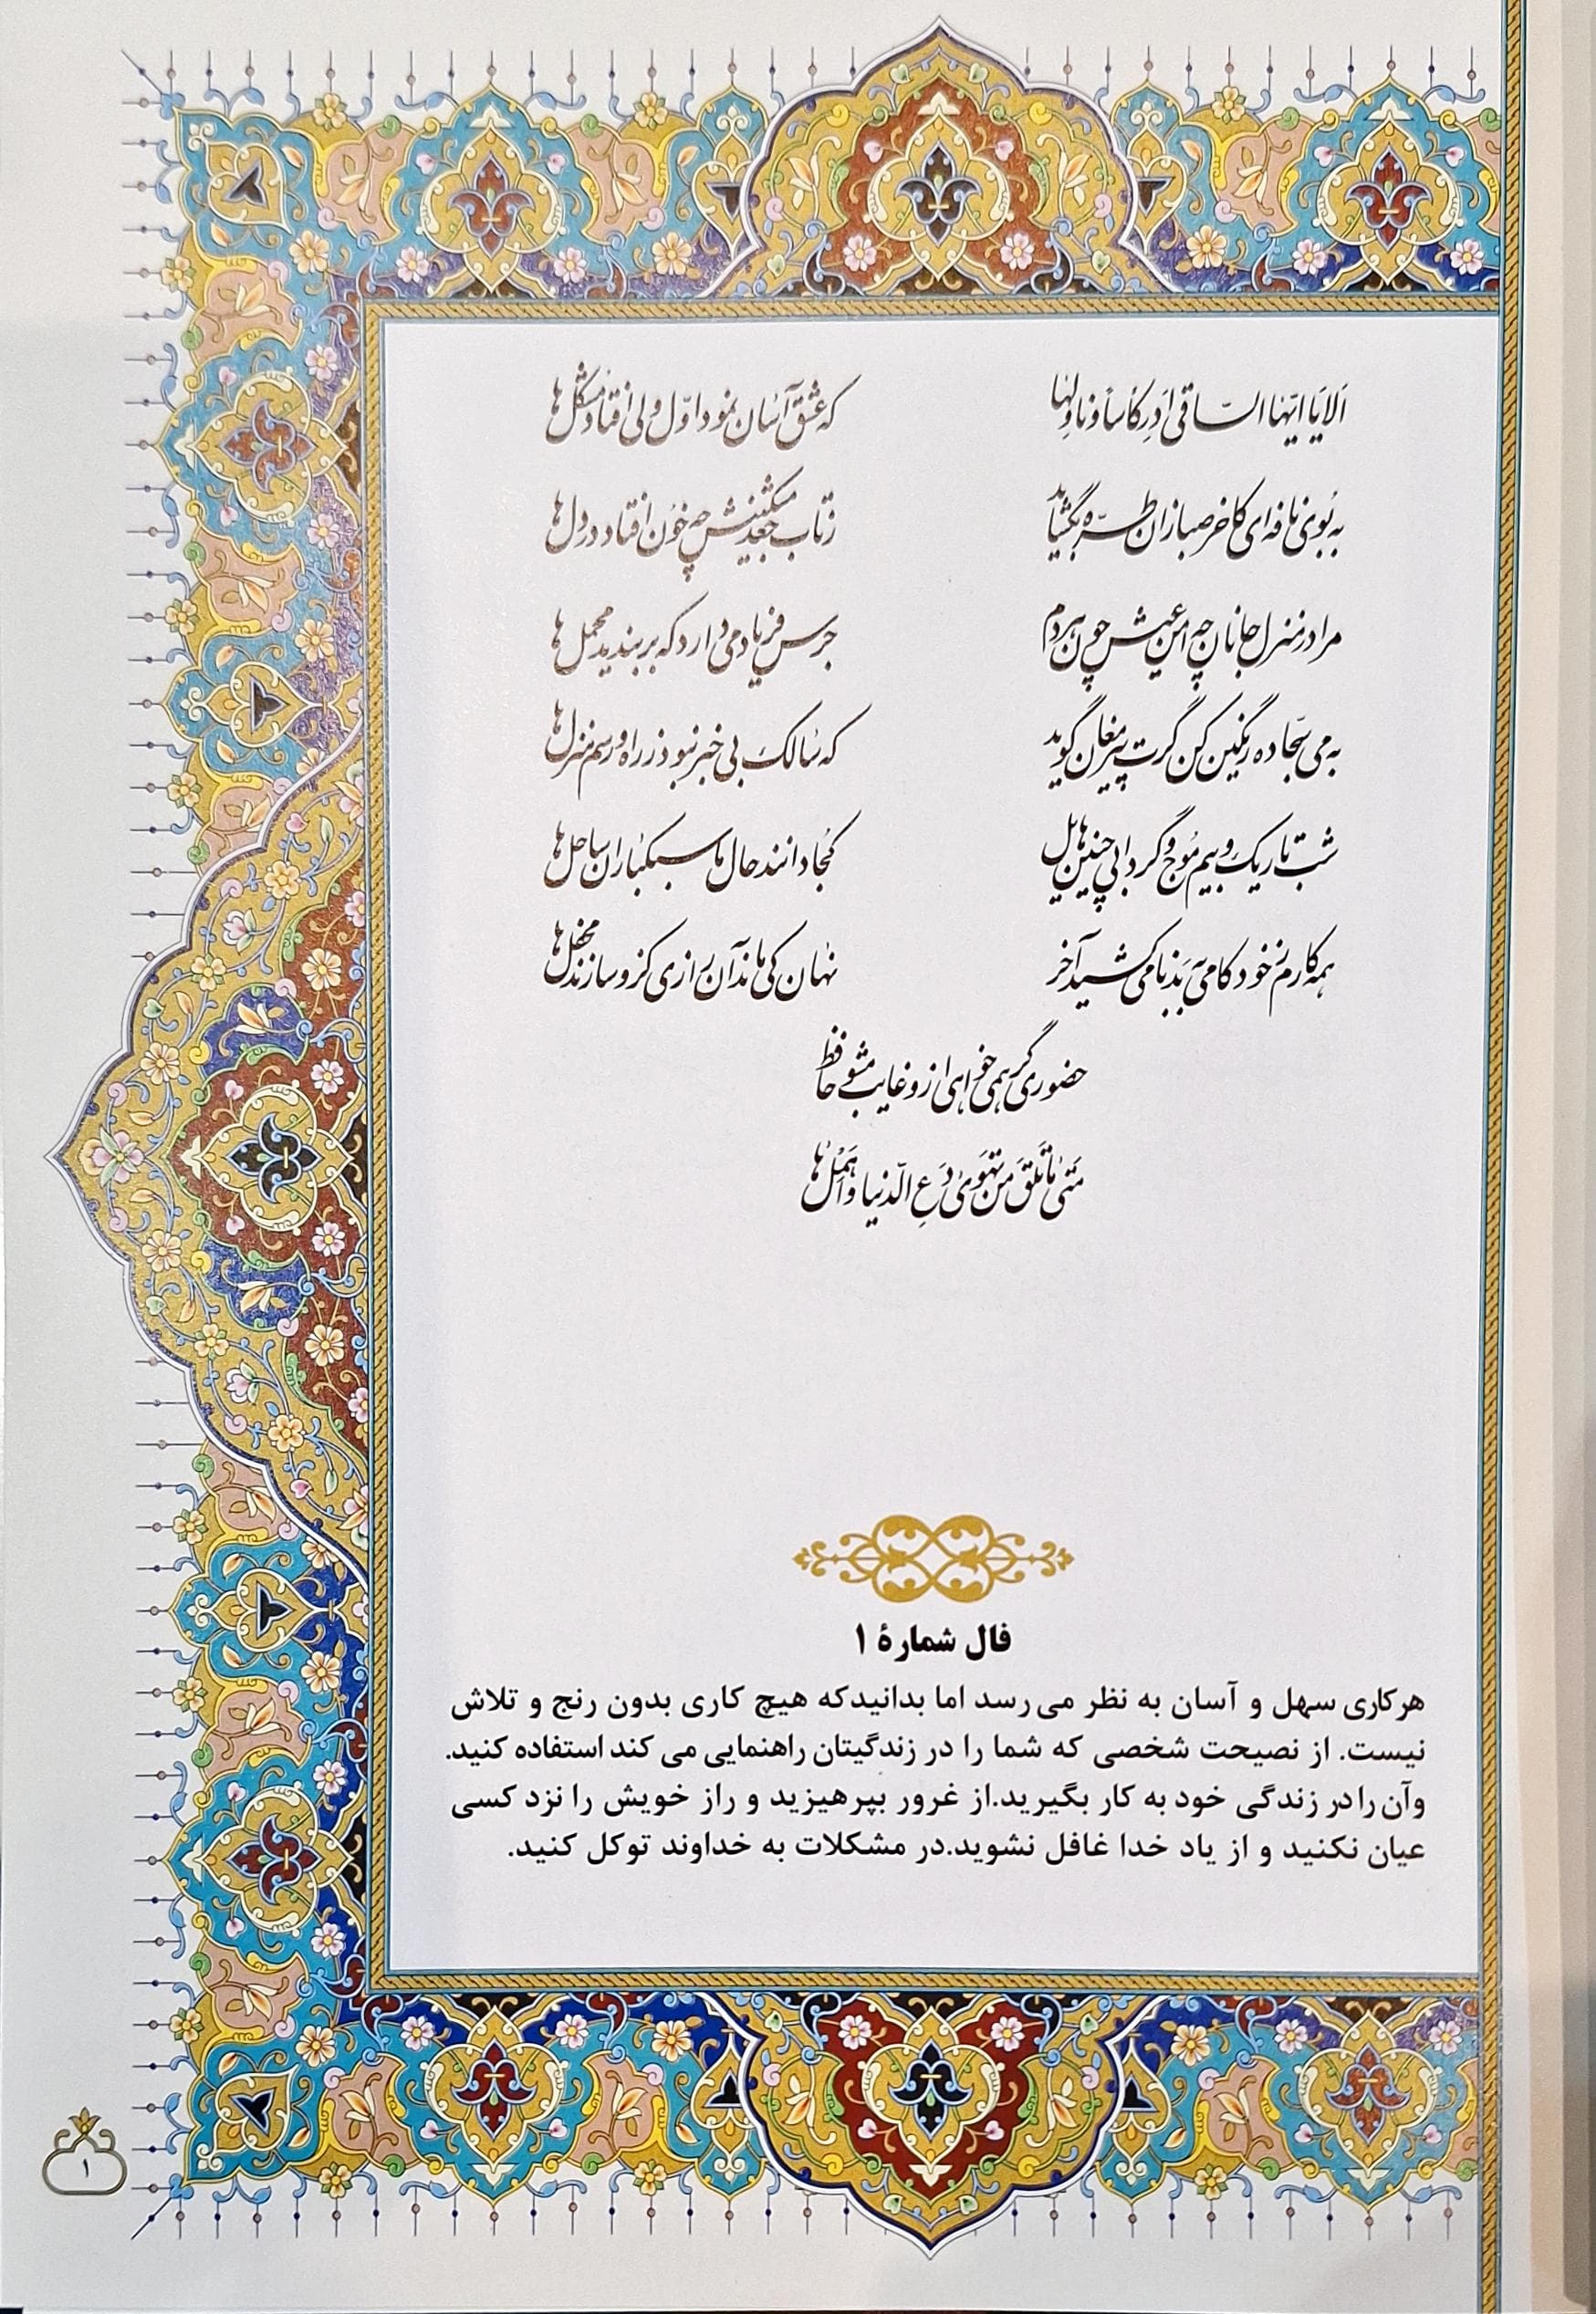 اَلا یٰا ایُّهَا السّاقی اَدِر کٰاساً و ناوِلها که عشق آسان نمود اوّل ولی افتاد مشکل‌ها
به بُوی نافه‌ای کاخر صبا زان طرّه بگشاید ز تاب جعد مشکینش چه خون افتاد در دل‌ها
مرا در منزل جانان چه امن عیش چون هر دم جرس فریاد می‌دارد که بربندید محمل‌ها
به می سجّاده رنگین کن گرت پیر مغان گوید که سالک بی خبر نبود ز راه و رسم منزل‌ها
شب تاریک و بیم موج و گردابی چنین هایل کجا دانند حال ما سبکباران ساحل‌ها
همه کارم ز خود کامی به بدنامی کشید آخر نهان کی ماند آن رازی کزو سازند محفل‌ها
حضوری گر همی خواهی ازو غایب مشو حافظ
مَتیٰ مٰا تَلْقَ مَن تَهْویٰ دَعِ الدّنیا و اَهْمِلْهٰا
فال شمارهٔ ۱
هرکاری سهل و آسان به نظر می رسد اما بدانیدکه هیچ کاری بدون رنج و تلاش
نیست. از نصیحت شخصی که شما را در زندگیتان راهنمایی می کند استفاده کنید.
وآن را در زندگی خود به کار بگیرید.از غرور بپرهیزید و راز خویش را نزد کسی
عیان نکنید و از یاد خدا غافل نشوید.در مشکلات به خداوند توکل کنید.
۱